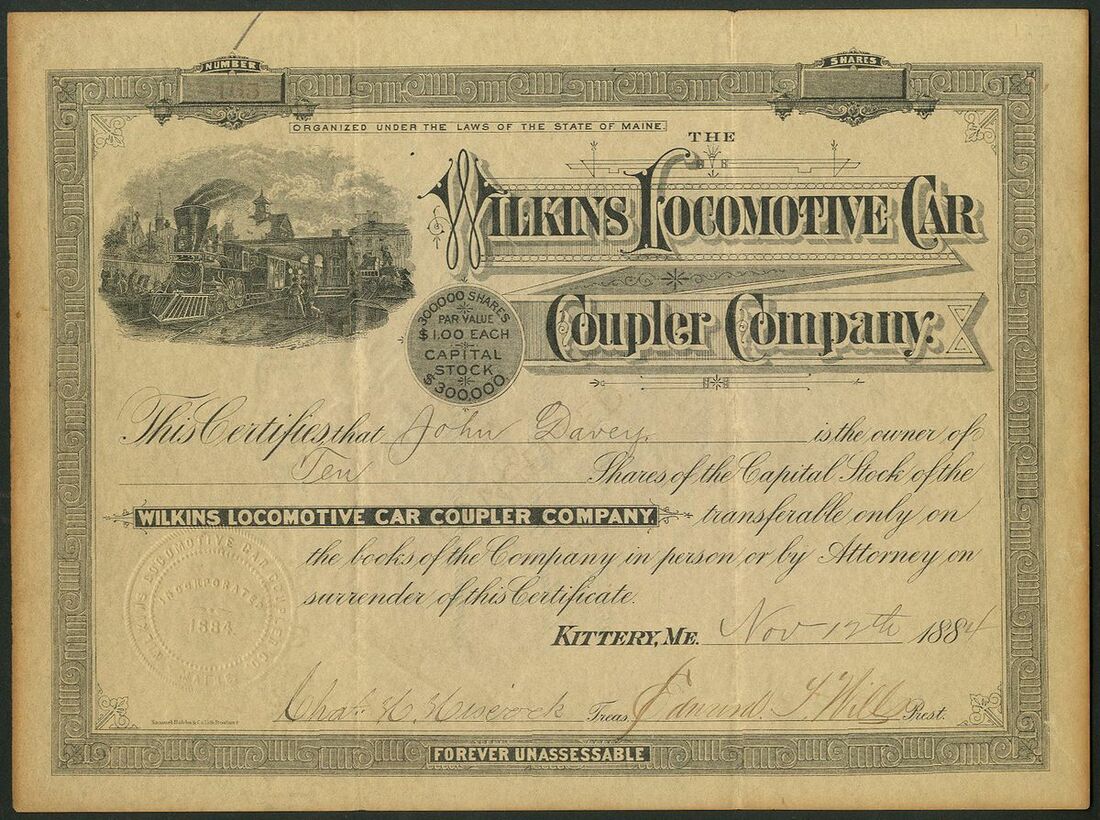 NUMBER
SHARES
ORGANIZED UNDER THE LAWS OF THE STATE OF MAINE.
THE
WILKINS LOCOMOTIVE CAR
COUPLER COMPANY.
300000 SHARES
PAR VALUE
$1.00 EACH
CAPITAL
STOCK
$300,000.
This Certifies, that John Davey. is the owner of
Ten Shares of the Capital Stock of the
WILKINS LOCOMOTIVE CAR COUPLER COMPANY. transferable only on
the books of the Company in person or by Attorney on
surrender of this Certificate.
KITTERY, ME. Nov 12th 1884
WILKINS LOCOMOTIVE CAR COUPLER CO.
INCORPORATED
1884.
MAINE
Chas H. Treas. Edward Prest.
FOREVER UNASSESSABLE